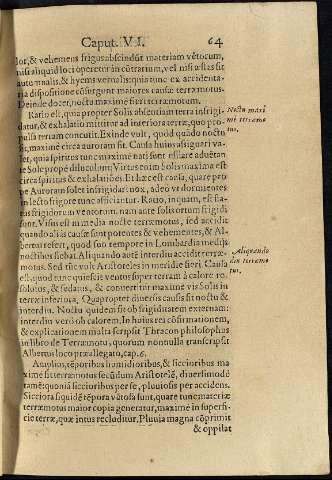 Caput. VI. 64
lor, & vehemens frigus abscindūt materiam vētorum,
nisi aliquid loci operetur in cōtrarium, vel nisi æstas sit
autumnalis, & hyems vernalis: quia tunc ex accidenta-
ria dispositione cōsurgunt maiores causæ terræmotus.
Deinde docet, nocta maximè fieri terræmotum.
Ratio est, quia propter Solis absentiam terra infrigi-
datur, & exhalatio mittitur ad interiora terræ, quo pro-
pulsa terram concutit. Exinde vult, quod quādo noctu
fit, maximè circa auroram sit. Causa huius assignari va-
let, quia spiritus tunc maximè nati sunt
te Sole propè diluculum; Virtus enim Solis maxima est
circa spiritus & exhalationes. Et hæc est causa, quare pro
pe Auroram solet infrigidari nox, adeò vt dormientes
in lecto frigore tunc afficiantur. Ratio, inquam, est fla-
tus frigidorum ventorum, nam ante solis ortum frigidi
sunt. Visus est in media nocte terræmotus, sed accidit
quando aliàs causæ sunt potentes & vehementes, & Al-
bertus refert, quod suo tempore in Lombardia medijs
noctibus fiebat. Aliquando autē interdiu accidit terræ-
motus. Sed fit vult Aristoteles in meridie fieri. Causa
est, quòd tunc quiescit ventus super terram à calore re-
solutus, & sedatus, & conuertitur maximè vis Solis in
terræ inferiora, Quapropter diuersis causis sit noctu &
interdiu. Noctu quidem fit ob frigiditatem externam:
interdiu verò ob calorem. In huius rei cōfirmationem,
& explicationem multa scripsit Thracon philosophus
in libro de Terræmotu, quorum nonnulla transcripsit
Albertus loco præallegato, cap. 6.
Ampliùs, tēporibus humidioribus, & siccioribus ma
xime fit terræmotus secūdum Aristotelē, diuersimodè
tamē: quoniā siccioribus per se, pluuiosis per accidens.
Sicciora siquidē tēpora vētosa sunt, quare tunc materiæ
terræmotus maior copia generatur, maximè in superfi-
cie terræ, quæ intus recluditur. Pluuia magna cōprimit
& oppilat
Noctu maxi
mè terræmo
tus.
Aliquando
diu terræmo
tus.